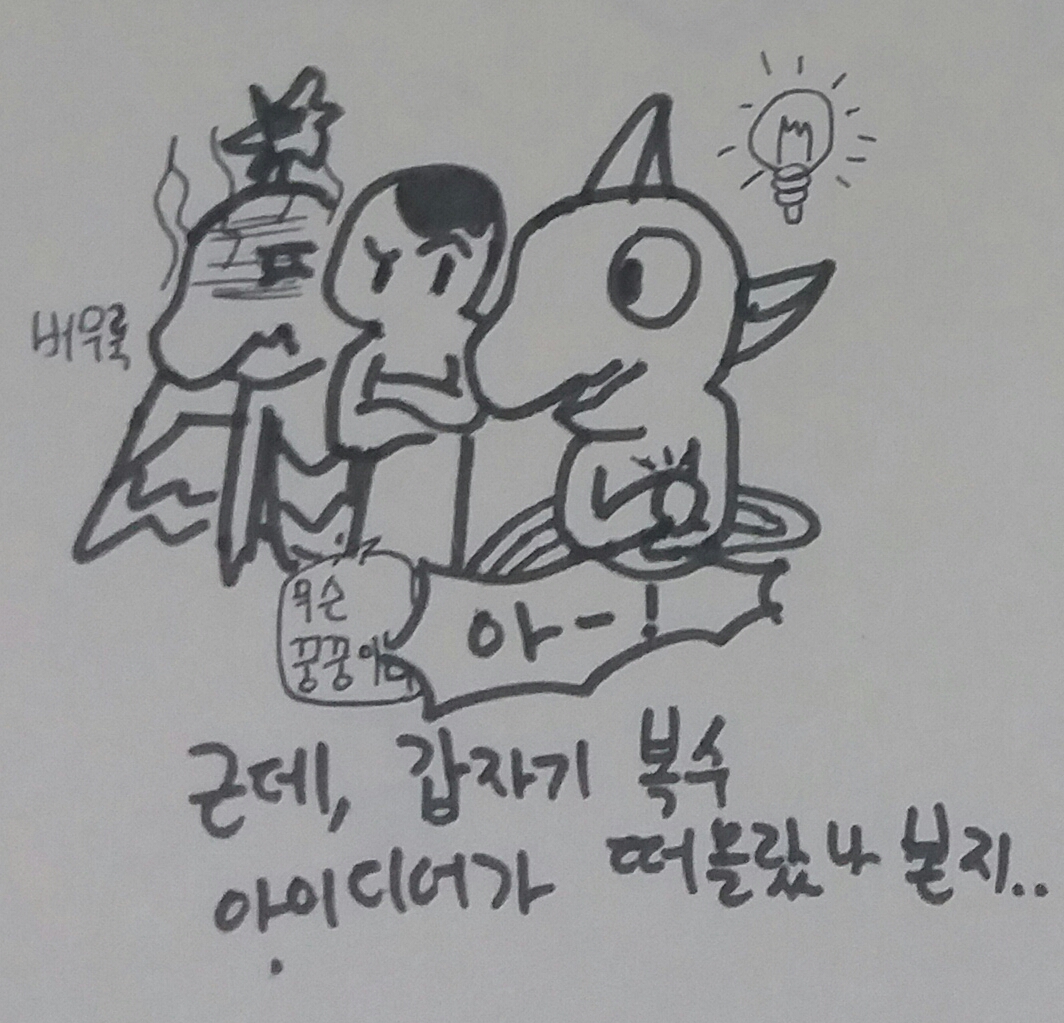 버우룩
무슨
꿍꿍이
아-!
근데, 갑자기 복수
아이디어가 떠올랐나 본지..